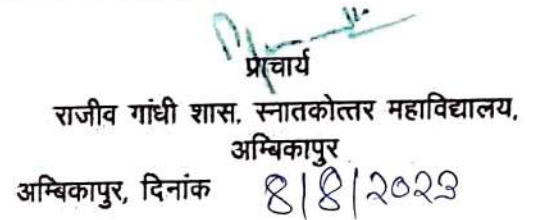 प्राचार्य
राजीव गांधी शास. स्नातकोत्तर महाविद्यालय,
अम्बिकापुर
अम्बिकापुर, दिनांक 8|8|2023